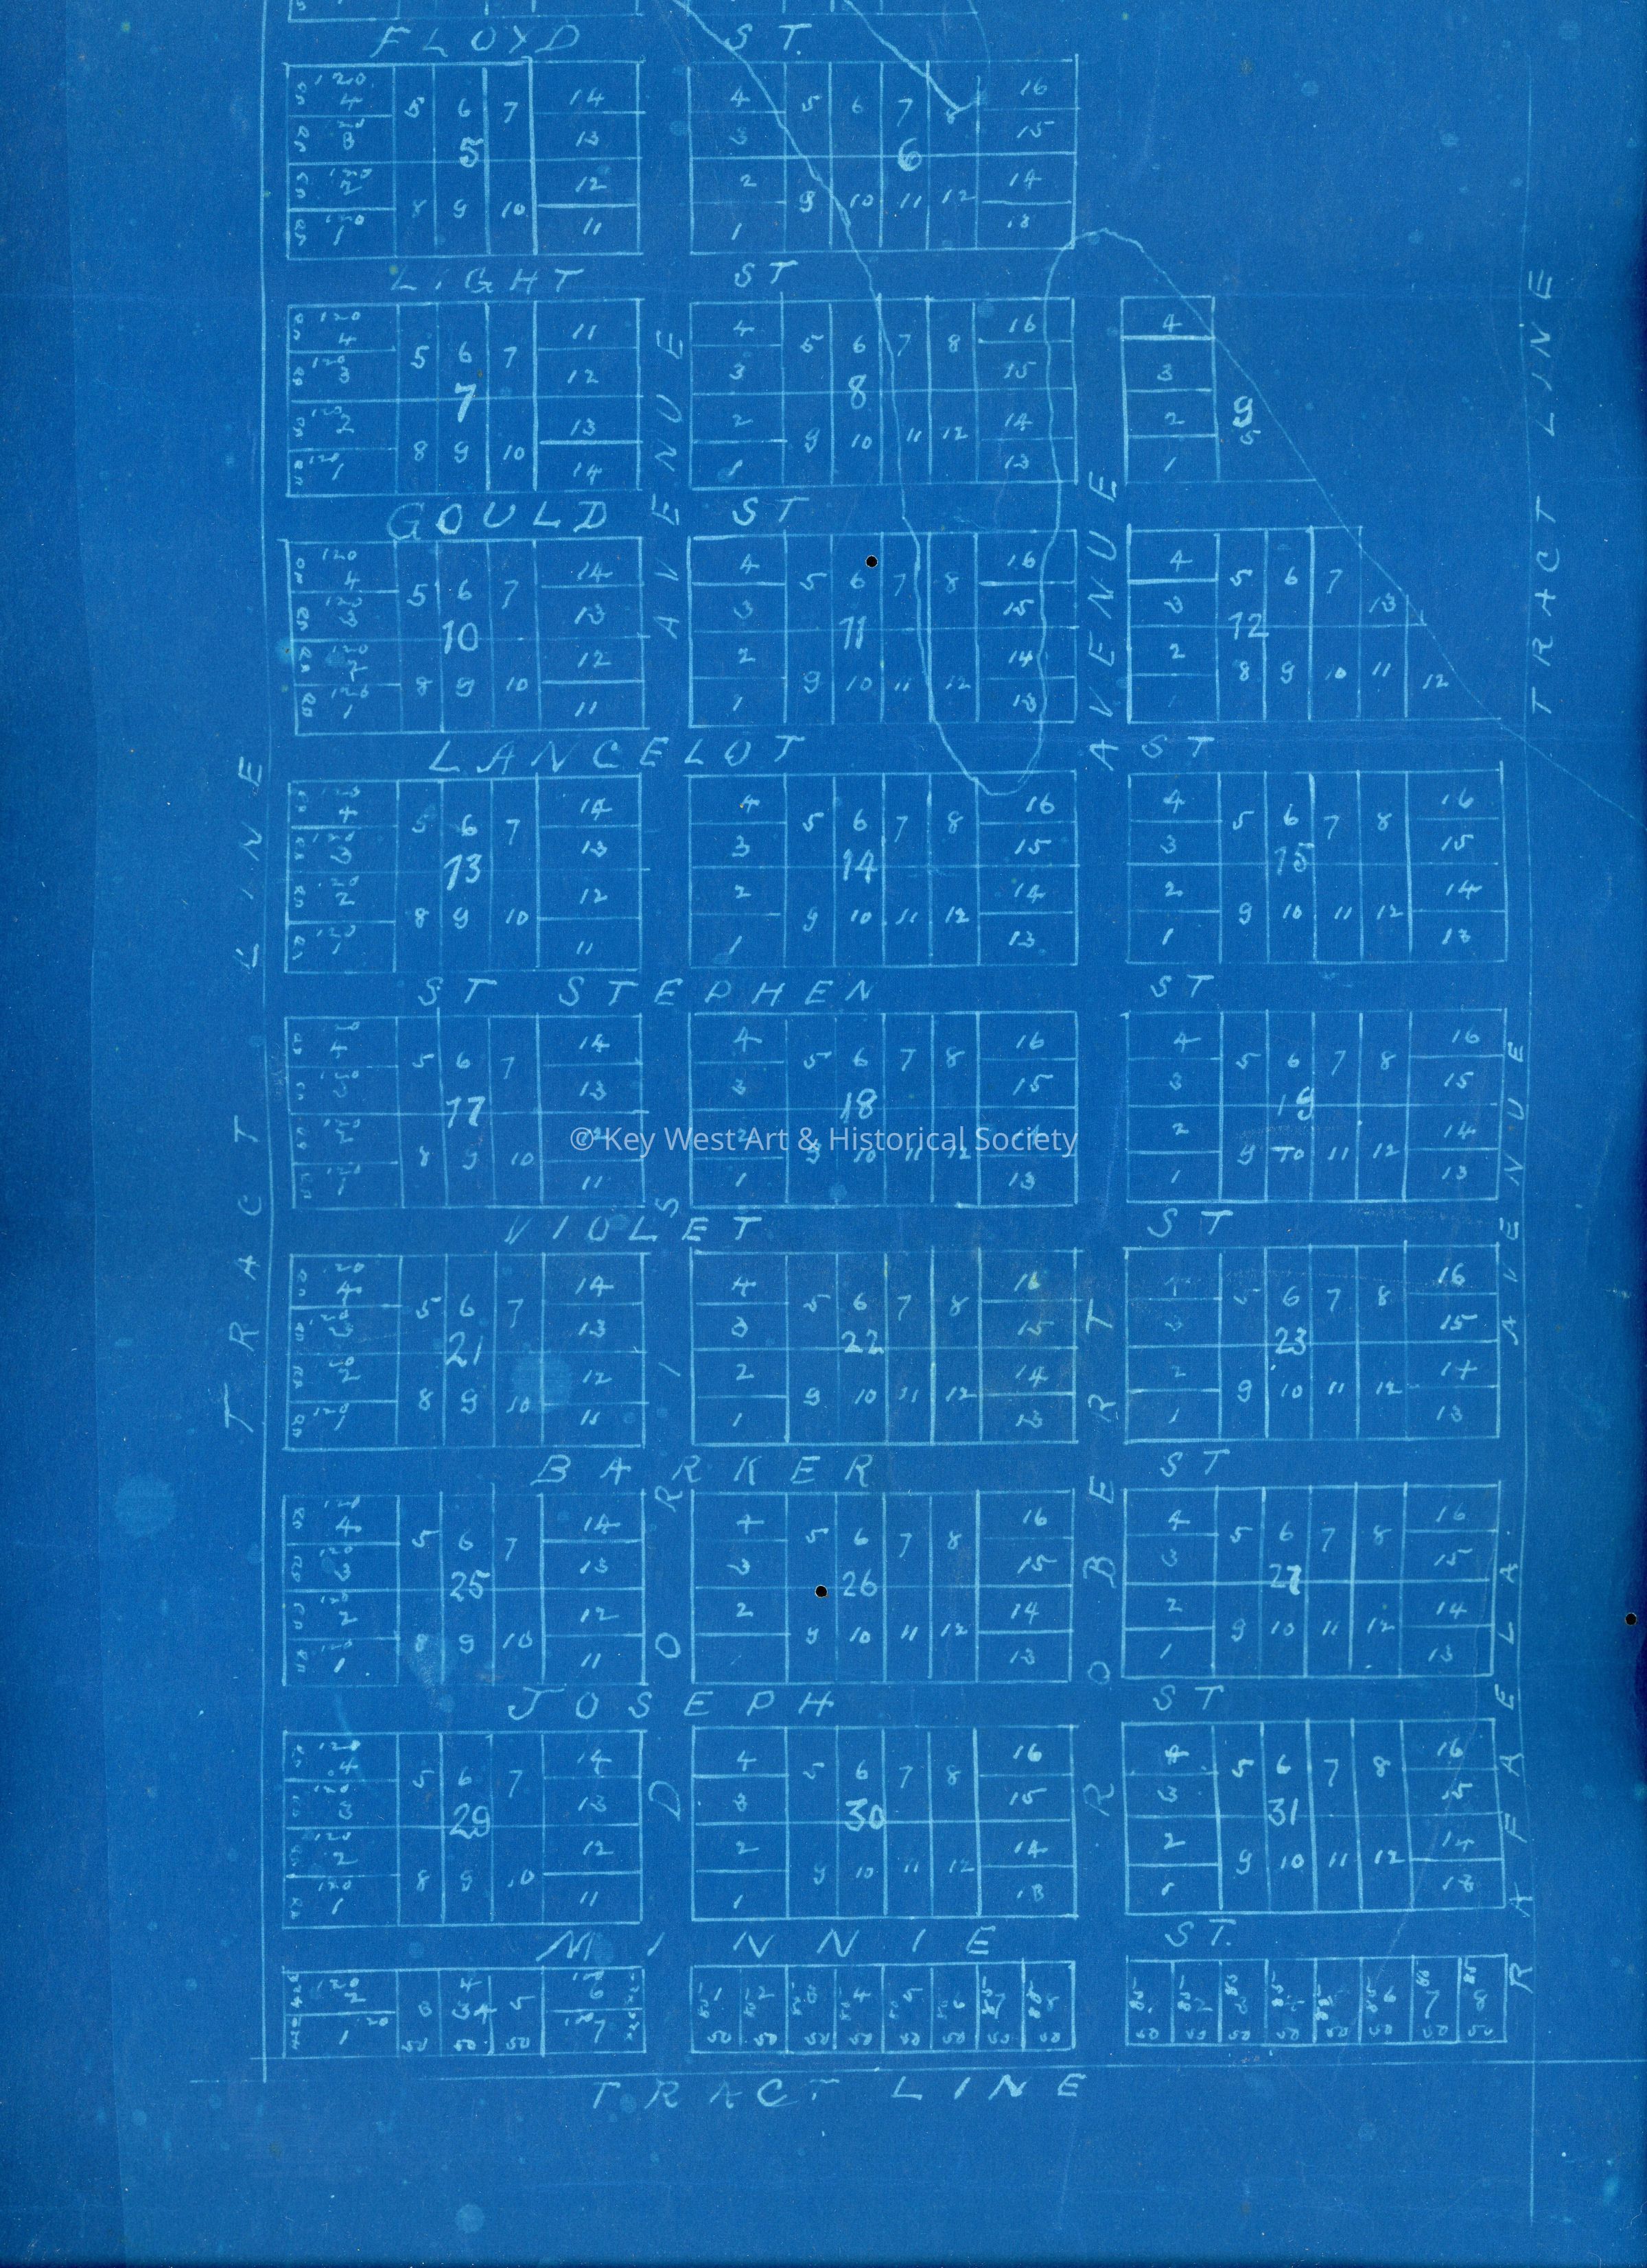 FLOYD ST.
120 4 5 6 7 14
3 13
5
120 2 12
120 1 8 9 10 11
4 5 6 7 8 16
3 15
6
2 14
1 9 10 11 12 13
LIGHT ST
120 4 5 6 7 11
120 3 12
7
120 2 13
120 1 8 9 10 14
4 5 6 7 8 16
3 15
8
2 14
1 9 10 11 12 13
4
3
9
2 5
1
GOULD ST
120 4 5 6 7 14
120 3 13
10
120 2 12
120 1 8 9 10 11
4 5 6 7 8 16
3 15
11
2 14
1 9 10 11 12 13
4 5 6 7
3 13
12
2 8 9 10 11 12
1
LANCELOT ST
120 4 5 6 7 14
120 3 13
13
120 2 12
120 1 8 9 10 11
4 5 6 7 8 16
3 15
14
2 14
1 9 10 11 12 13
4 5 6 7 8 16
3 15
15
2 14
1 9 10 11 12 13
ST STEPHEN ST
4 5 6 7 14
13
17
12
120 1 8 9 10 11
4 5 6 7 8 16
3 15
18
2
1 9 10 11 12 13
4 5 6 7 8 16
3 15
19
2 14
1 9 10 11 12 13
© Key West Art & Historical Society
VIOLET ST
120 4 5 6 7 14
3 13
21
120 2 12
120 1 8 9 10 11
4 5 6 7 8 16
3 15
22
2 14
1 9 10 11 12 13
4 5 6 7 8 16
3 15
23
2 14
1 9 10 11 12 13
BARKER ST
120 4 5 6 7 14
120 3 13
25
120 2 12
120 1 8 9 10 11
4 5 6 7 8 16
3 15
26
2 14
9 10 11 12 13
4 5 6 7 8 16
3 15
27
2 14
1 9 10 11 12 13
JOSEPH ST
120 4 5 6 7 14
120 3 13
29
120 2 12
120 1 8 9 10 11
4 5 6 7 8 16
3 15
30
2 14
1 9 10 11 12 13
4 5 6 7 8 16
3 15
31
2 14
1 9 10 11 12 13
MINNIE ST.
120 2 3 4 5 6
1 50 50 50 7
1 2 3 4 5 6 7 8
50 50 50 50 50 50 50 50
1 2 3 4 5 6 7 8
50 50 50 50 50 50 50 50
TRACT LINE
TRACT LINE
DORIS AVENUE
ROBERTA AVENUE
RAFAELA AVENUE
TRACT LINE